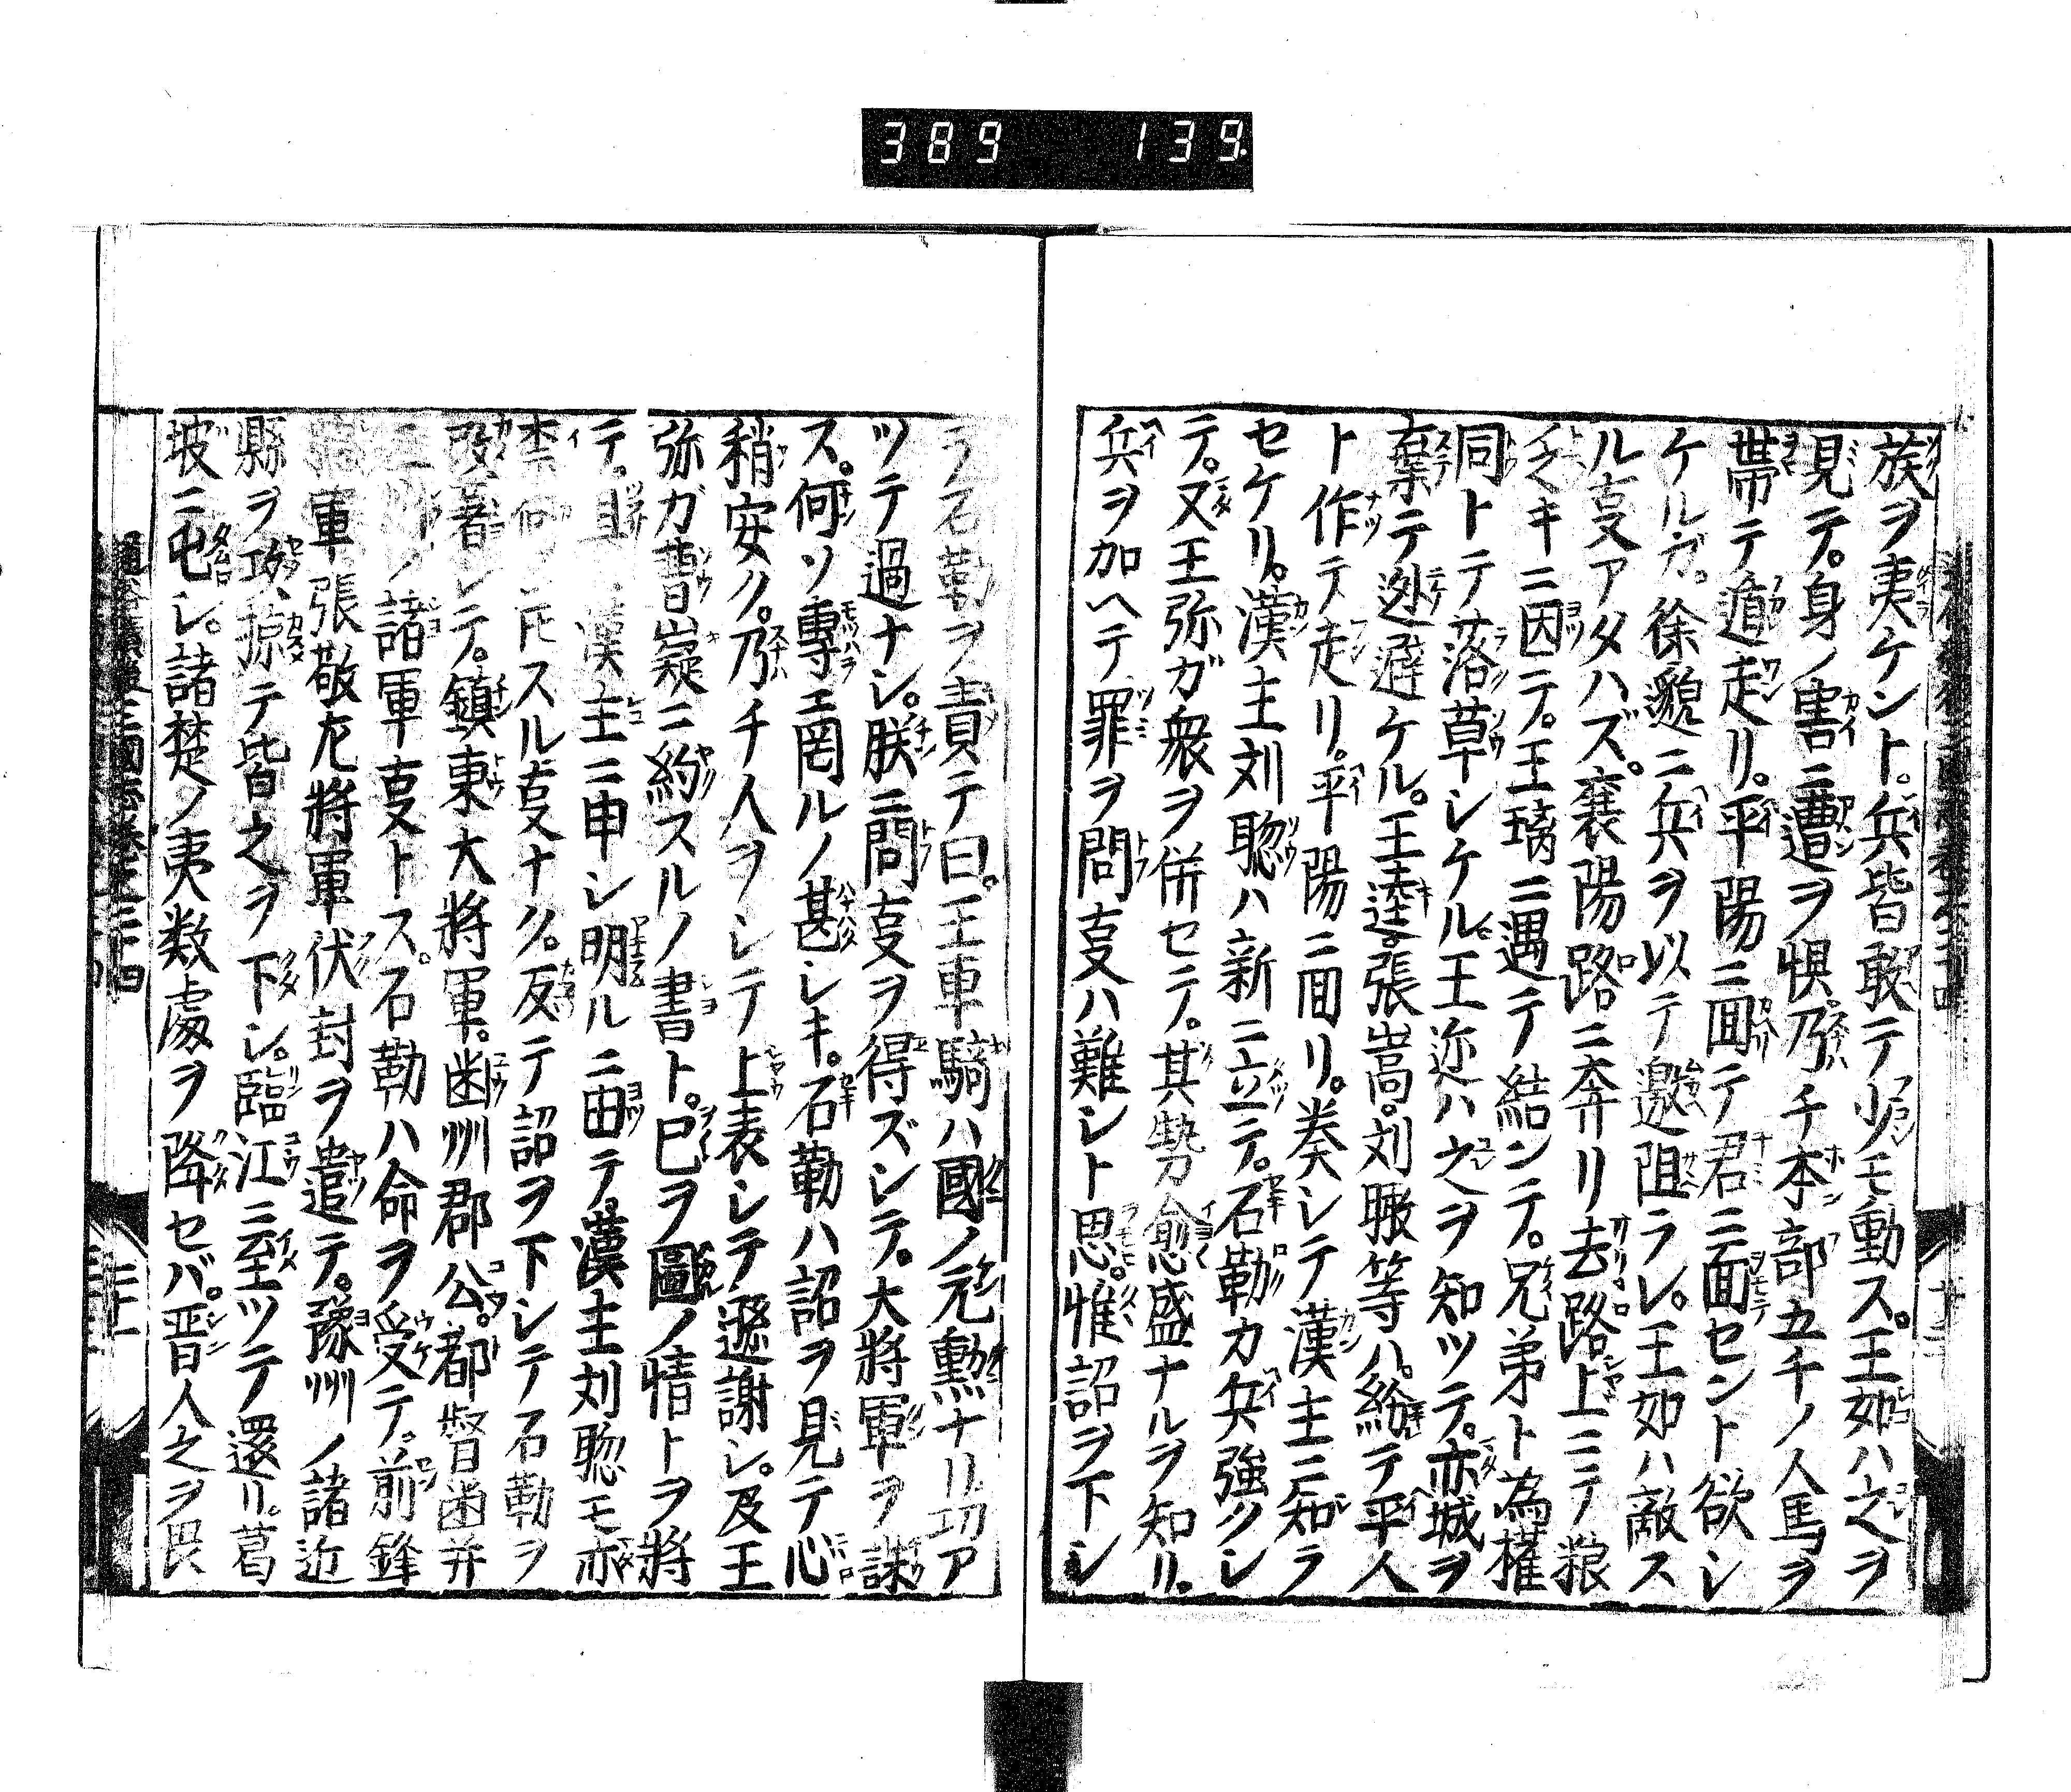 389 139.
族ヲ夷ケント。兵皆敢テ少モ動ス。王如ハ之ヲ
見テ。身ノ害ニ遭ヲ惧。乃チ本部五千ノ人馬ヲ
帯テ遁走リ。平陽ニ囬テ君ニ面セント欲シ
ケルガ。徐邈ニ兵ヲ以テ邀阻ラレ。王如ハ敵ス
ル㕝アタハズ。襄陽路ニ奔リ去路上ニテ粮
乏キニ因テ。王璃ニ遇テ結ンテ。兄弟ト為権
同トテ落草シケル。王弥ハ之ヲ知ツテ。亦城ヲ
棄テ逃避ケル。王逵。張嵩。刘暾等ハ。紛テ平人
ト作テ走リ。平陽ニ囬リ。奏シテ漢主ニ知ラ
セケリ。漢主刘聡ハ新ニ立テ。石勒カ兵強クシ
テ。又王弥ガ衆ヲ併セテ。其勢愈盛ナルヲ知リ。
兵ヲ加ヘテ罪ヲ問㕝ハ難シト思。惟詔ヲ下シ
ラ石勒ヲ責テ曰。王車騎ハ國ノ元勲ナリ功ア
ツテ過ナシ。朕ニ問㕝ヲ得ズシテ。大將軍ヲ誅
ス。何ソ專ニ罔ルノ甚シキ。石勒ハ詔ヲ見テ心
稍安ク。乃チ人ヲシテ上表シテ遜謝シ。及王
弥ガ曹嶷ニ約スルノ書ト。巳ヲ圖ノ情トヲ將
テ。且漢主ニ申シ明ルニ由テ。漢主刘聡モ亦
柰何スル㕝ナク。反テ詔ヲ下シテ石勒ヲ
シテ。鎮東大將軍。幽州郡公。都督幽并
ノ諸軍㕝トス。石勒ハ命ヲ受テ。前鋒
將軍張敬左將軍伏封ヲ遣テ。豫州ノ諸近
縣ヲ攻掠テ皆之ヲ下シ。臨江ニ至ツテ還リ。葛
坡ニ屯シ。諸楚ノ夷数處ヲ降セバ。晋人之ヲ畏